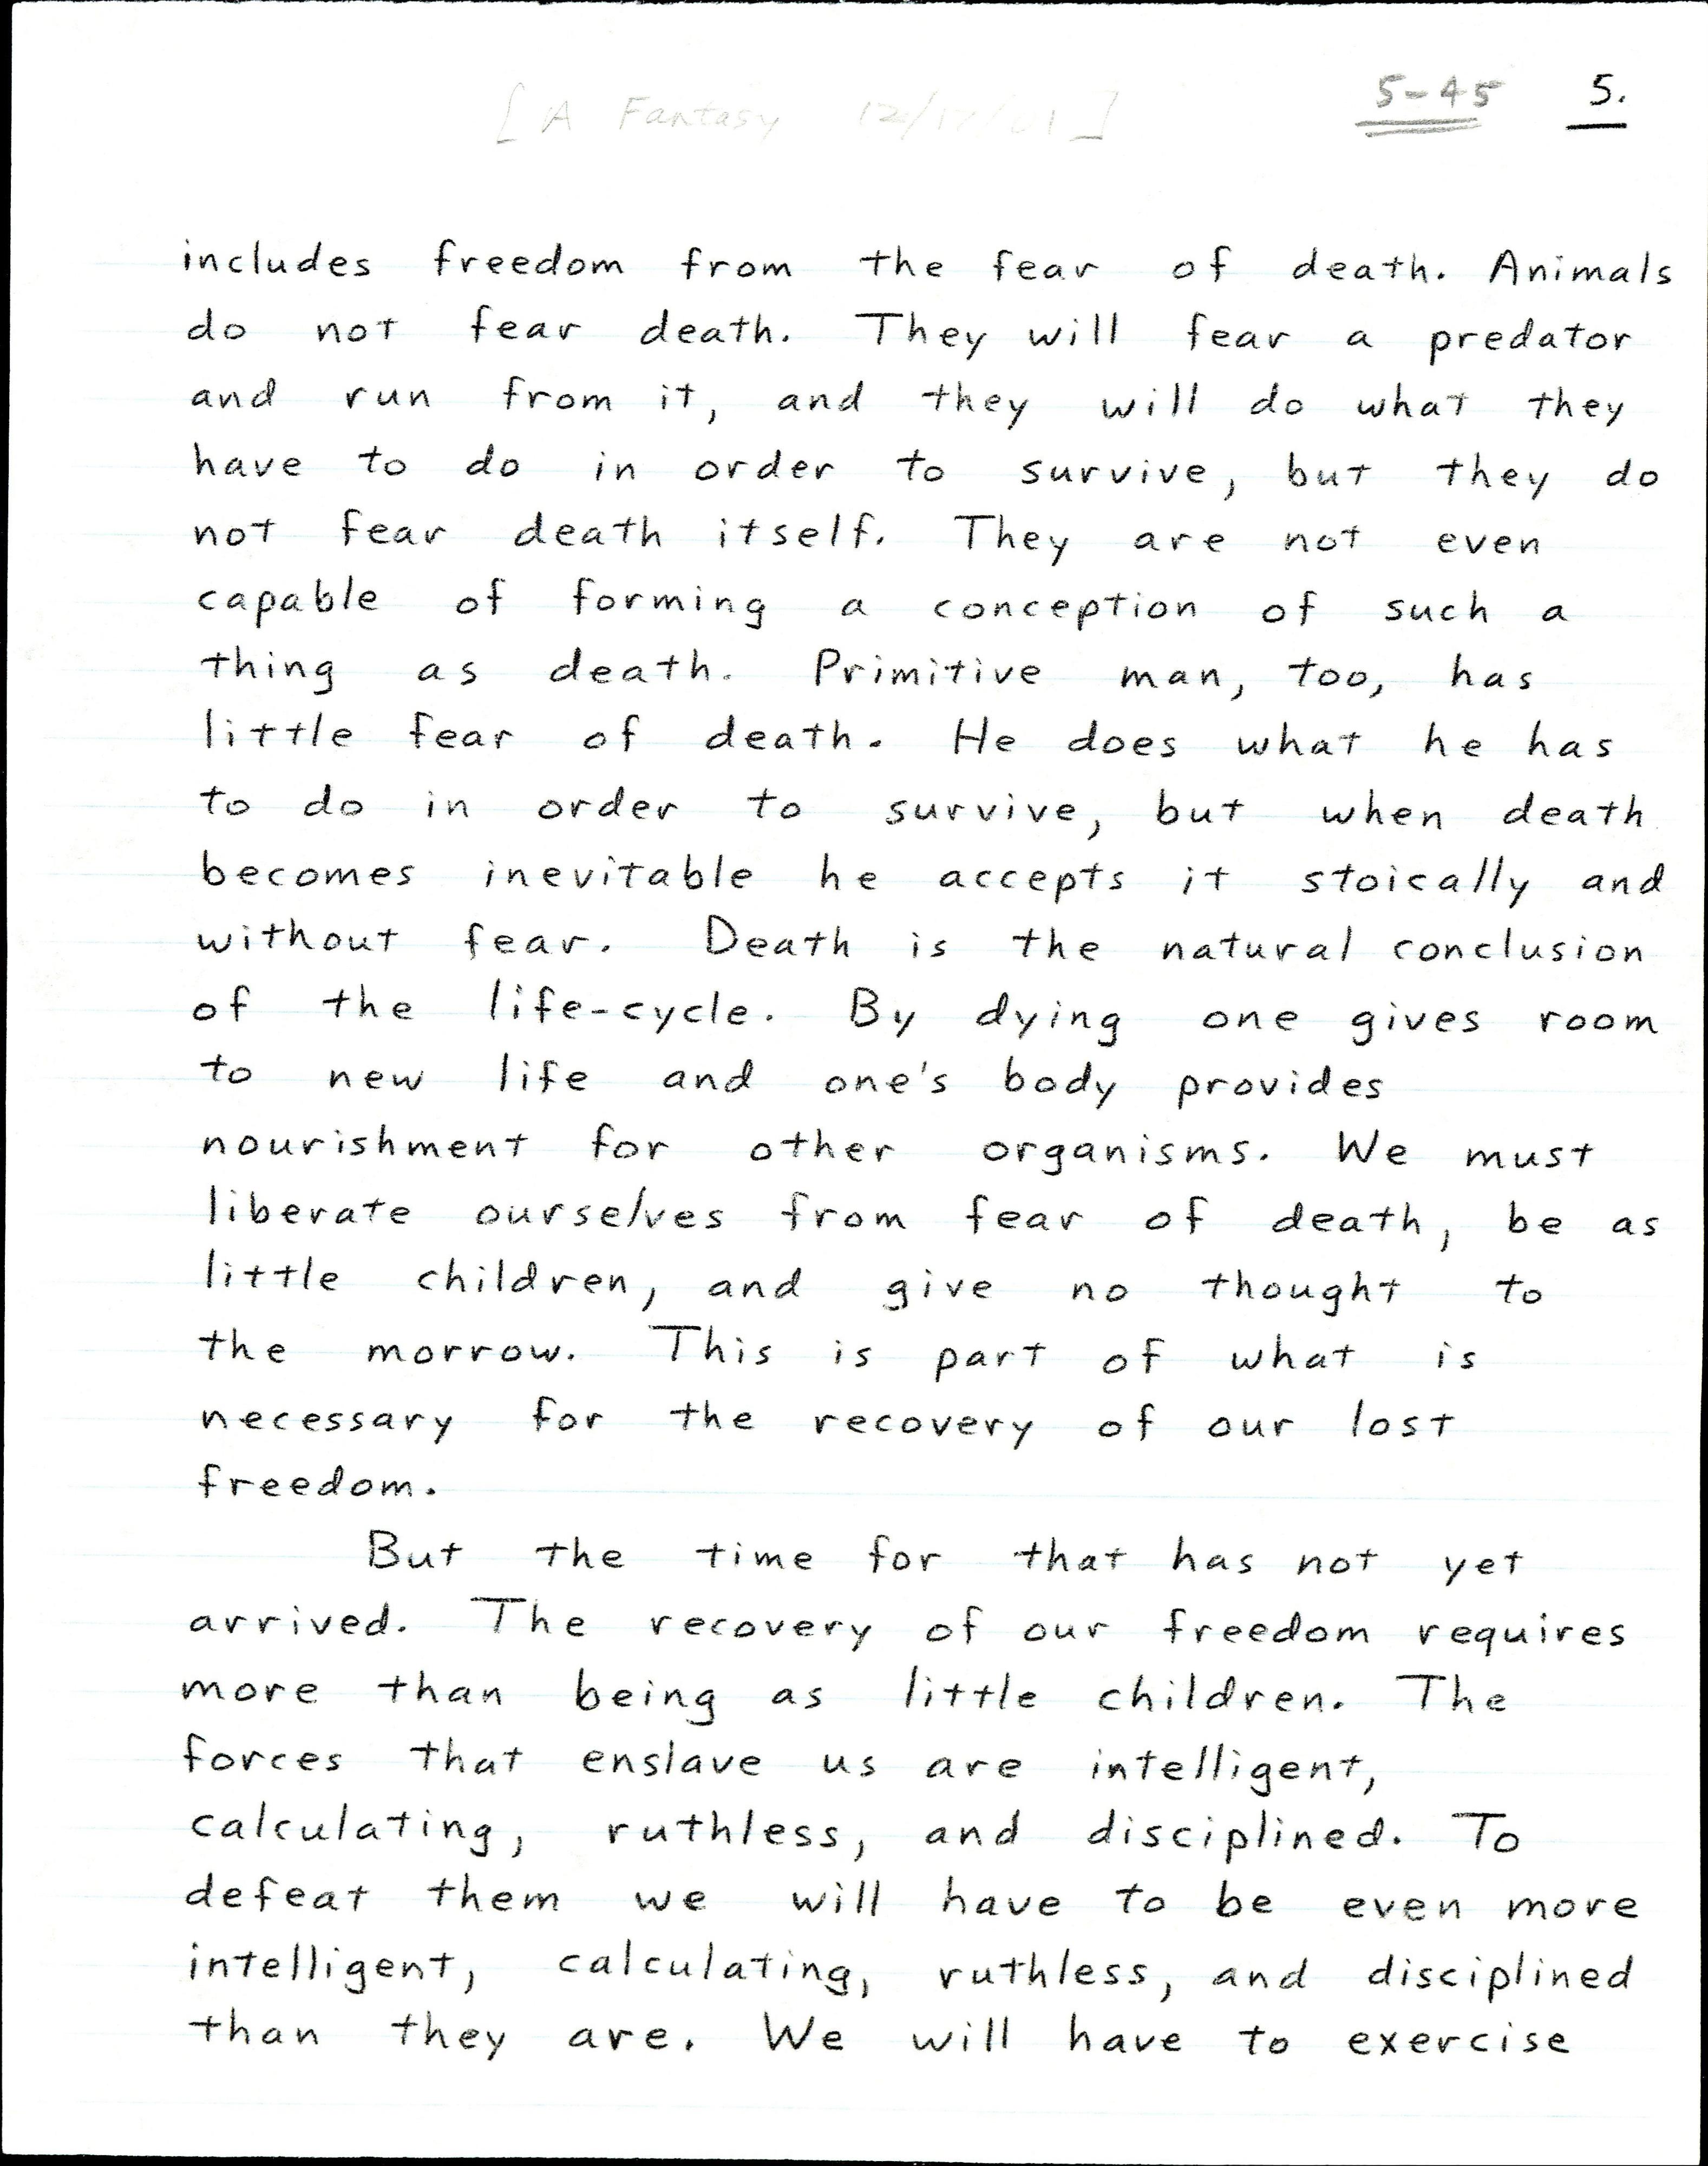 [A Fantasy 12/17/01] 5-45 5.
includes freedom from the fear of death. Animals
do not fear death. They will fear a predator
and run from it, and they will do what they
have to do in order to survive, but they do
not fear death itself. They are not even
capable of forming a conception of such a
thing as death. Primitive man, too, has
little fear of death. He does what he has
to do in order to survive, but when death
becomes inevitable he accepts it stoically and
without fear. Death is the natural conclusion
of the life-cycle. By dying one gives room
to new life and one's body provides
nourishment for other organisms. We must
liberate ourselves from fear of death, be as
little children, and give no thought to
the morrow. This is part of what is
necessary for the recovery of our lost
freedom.
But the time for that has not yet
arrived. The recovery of our freedom requires
more than being as little children. The
forces that enslave us are intelligent,
calculating, ruthless, and disciplined. To
defeat them we will have to be even more
intelligent, calculating, ruthless, and disciplined
than they are. We will have to exercise